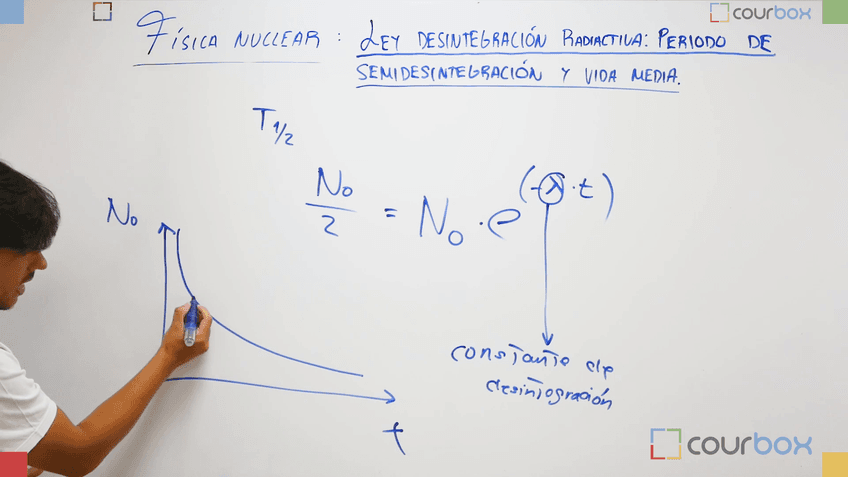 courbox
FÍSICA NUCLEAR : LEY DESINTEGRACIÓN RADIACTIVA: PERIODO DE
SEMIDESINTEGRACIÓN Y VIDA MEDIA.
T 1/2
N₀/2 = N₀ · e^(-λ·t)
N₀
t
constante de
desintegración
courbox